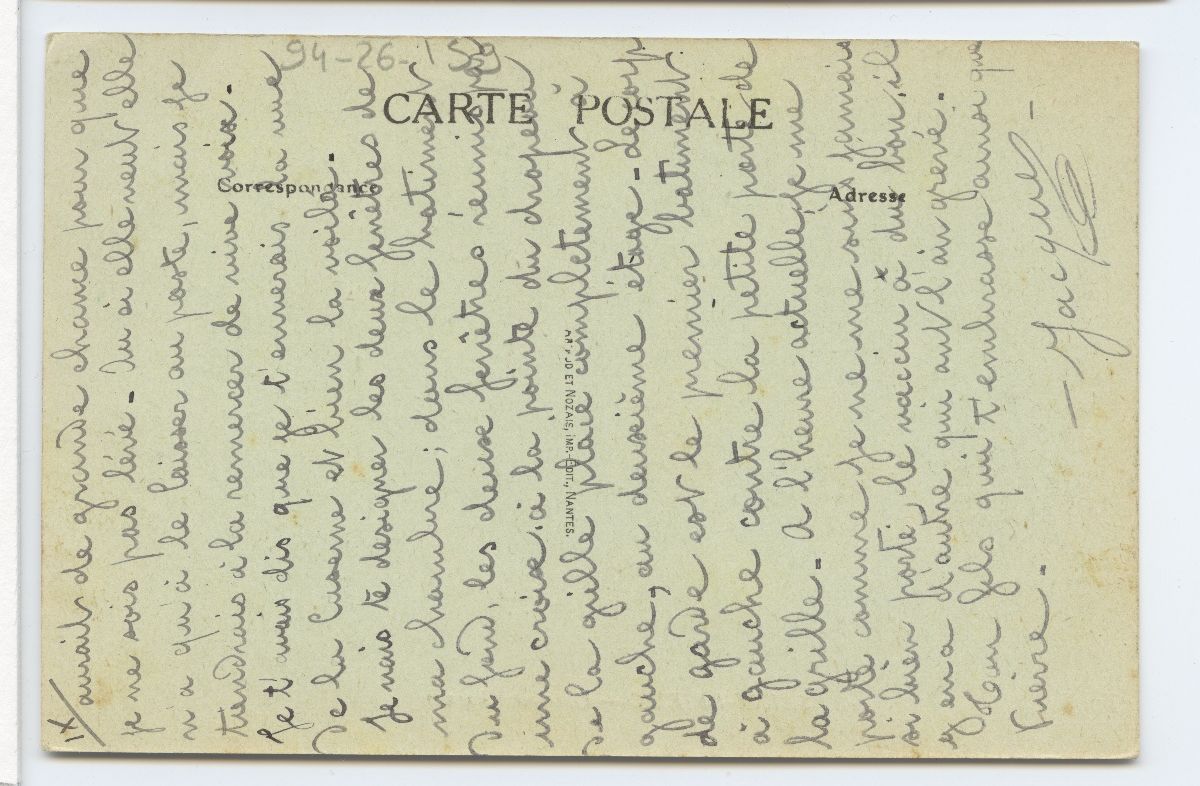 94-26-159
CARTE POSTALE
Correspondance
Adresse
ARTAUD ET NOZAIS, IMP.-EDIT., NANTES.
IX/
aurait de grande chance pour que
je ne sois pas levé - Ou si elle veut elle
n'a qu'à le laisser au poste, mais je
tiendrais à la remercier de vive voix.
Je t'avais dis que je t'enverrais la vue
de la Caserne et bien la voilà -
Je vais te désigner les deux fenêtres de
ma chambre ; dans le batiment
du fond, les deux fenêtres réunis par
une croix : à la pointe du drapeau
de la grille placé complètement à
gauche, au deuxième étage - Le corp
de garde est le premier batiment
à gauche contre la petite porte de
la grille - A l'heure actuelle je me
porte comme je ne me suis jamais
si bien porté, le vaccin a du bon, il
y en a d'autre qui ont l'air crevé.
Ton fils qui t'embrasse ainsi que
Pierre -
- Jacques -